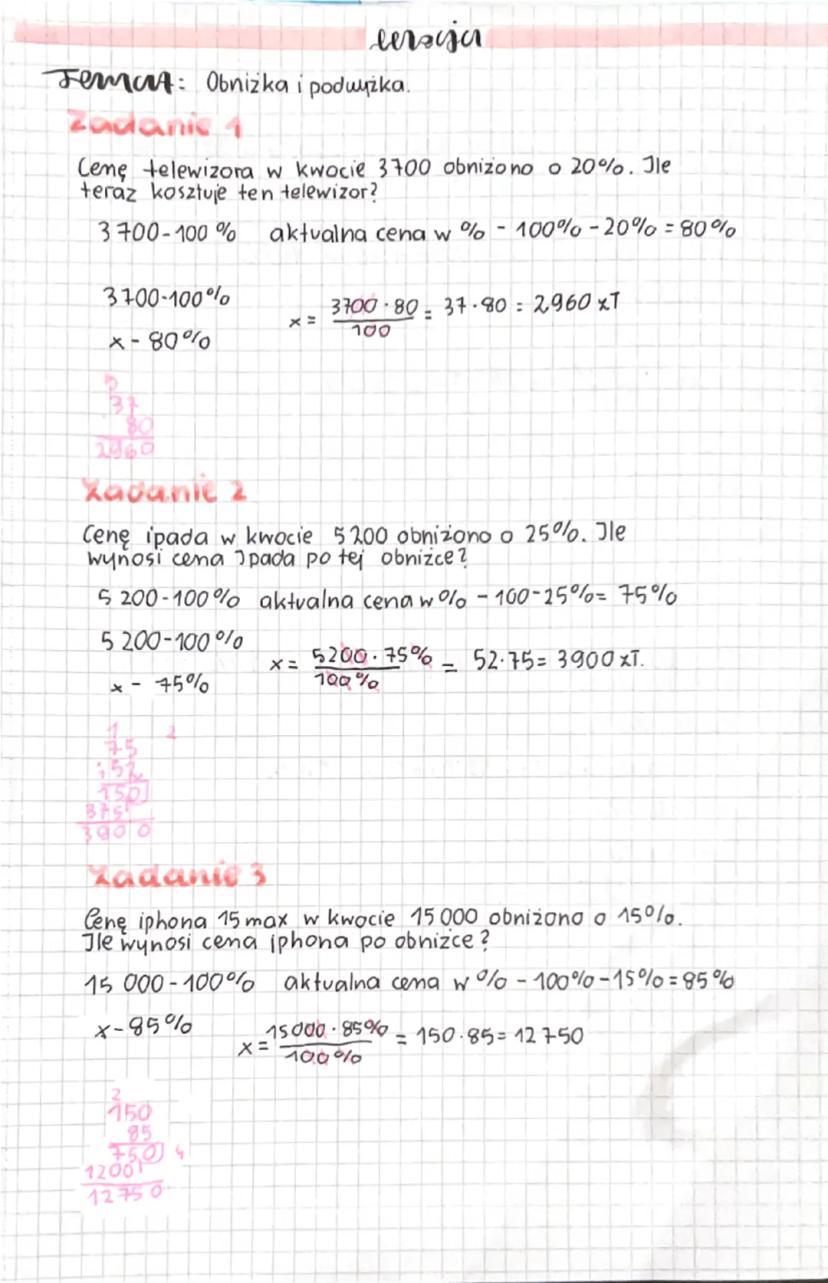 lekcja
Temat: Obniżka i podwyżka.
Zadanie 1
Cenę telewizora w kwocie 3700 obniżono o 20%. Ile
teraz kosztuje ten telewizor?
3700-100% aktualna cena w % - 100% - 20% = 80%
3700-100%
x - 80%
x = 3700 · 80 / 100 = 37·80 = 2960 zł
5
37
80
2960
Zadanie 2
Cenę ipada w kwocie 5200 obniżono o 25%. Ile
wynosi cena Ipada po tej obniżce?
5 200-100% aktualna cena w % - 100-25% = 75%
5 200-100%
x - 75%
x = 5200 · 75% / 100% = 52·75 = 3900 zł.
1 2
75
52
150
375
3900
Zadanie 3
Cenę iphona 15 max w kwocie 15 000 obniżono o 15%.
Ile wynosi cena iphona po obniżce?
15 000 - 100% aktualna cena w % - 100% - 15% = 85%
x - 85%
x = 15000 · 85% / 100% = 150·85 = 12750
2
150
85
750 4
1200
12750